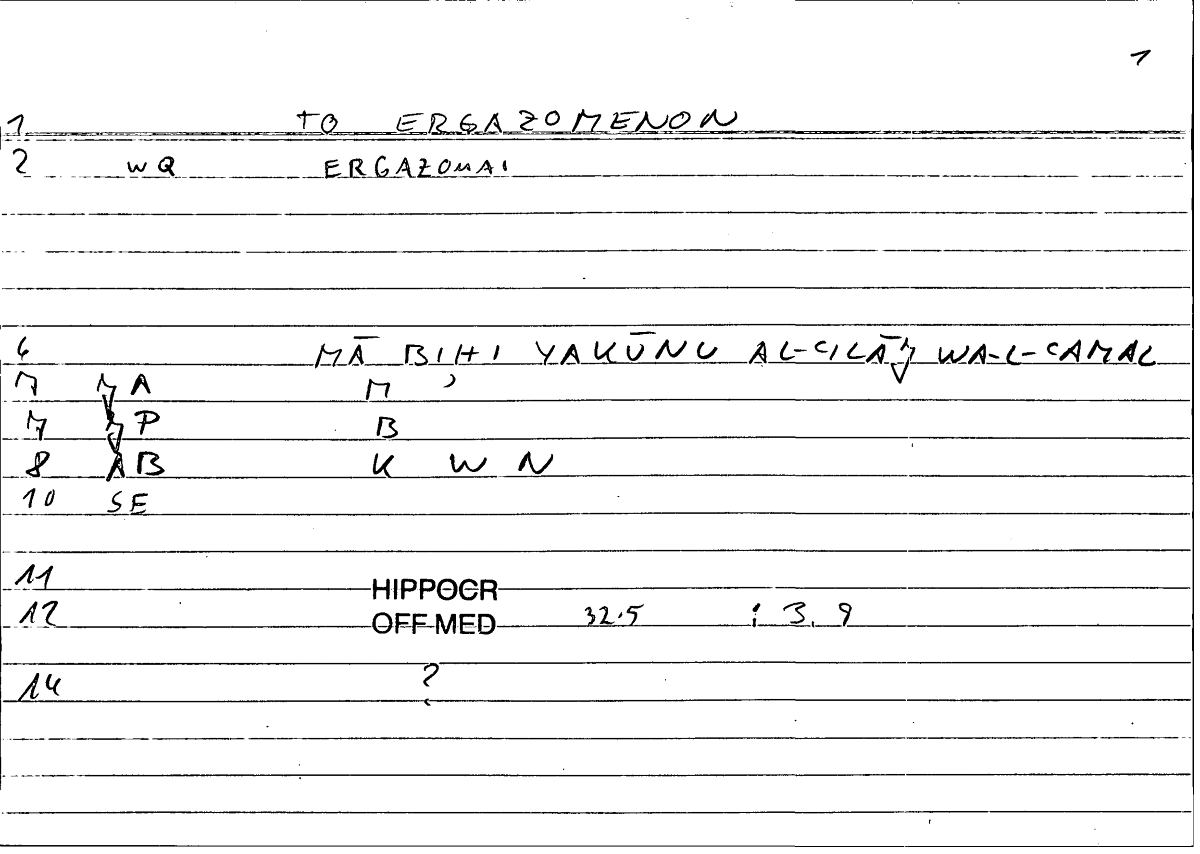 1
1 TO ERGAZOMENON
2 WQ ERGAZOMAI
6 MĀ BIHI YAKŪNU WA-L-ʿAMAL
7 M ʾ
7 B
8 AB K W N
10 SE
11 HIPPOCR
12 OFF MED 32.5 ; 3, 9
14 ?